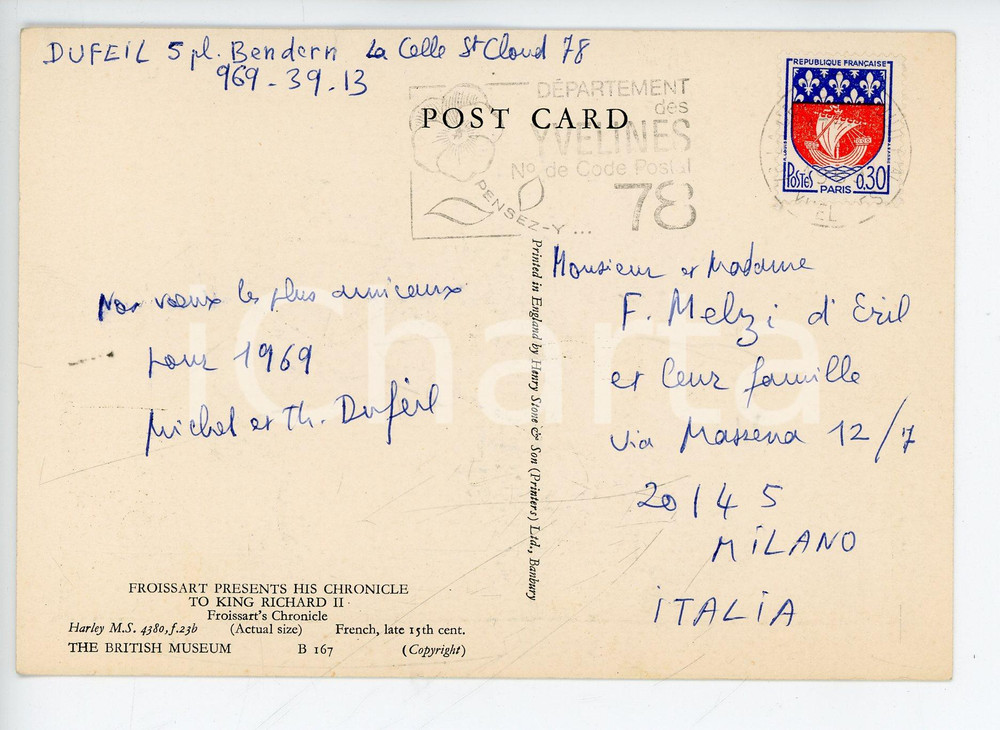 DUFEIL 5 pl. Bendern La Celle St Cloud 78
969-39.13
POST CARD
DÉPARTEMENT
des
YVELINES
No de Code Postal
78
PENSEZ-Y...
REPUBLIQUE FRANÇAISE
POSTES
PARIS
0,30
Nos voeux les plus amicaux
pour 1969
Michel et Th. Dufeil
Printed in England by Henry Stone & Son (Printers) Ltd., Banbury
Monsieur et Madame
F. Melzi d'Eril
et leur famille
via Massena 12/7
20145
MILANO
ITALIA
FROISSART PRESENTS HIS CHRONICLE
TO KING RICHARD II
Froissart's Chronicle
Harley M.S. 4380, f.23b (Actual size) French, late 15th cent.
THE BRITISH MUSEUM B 167 (Copyright)
iCharta